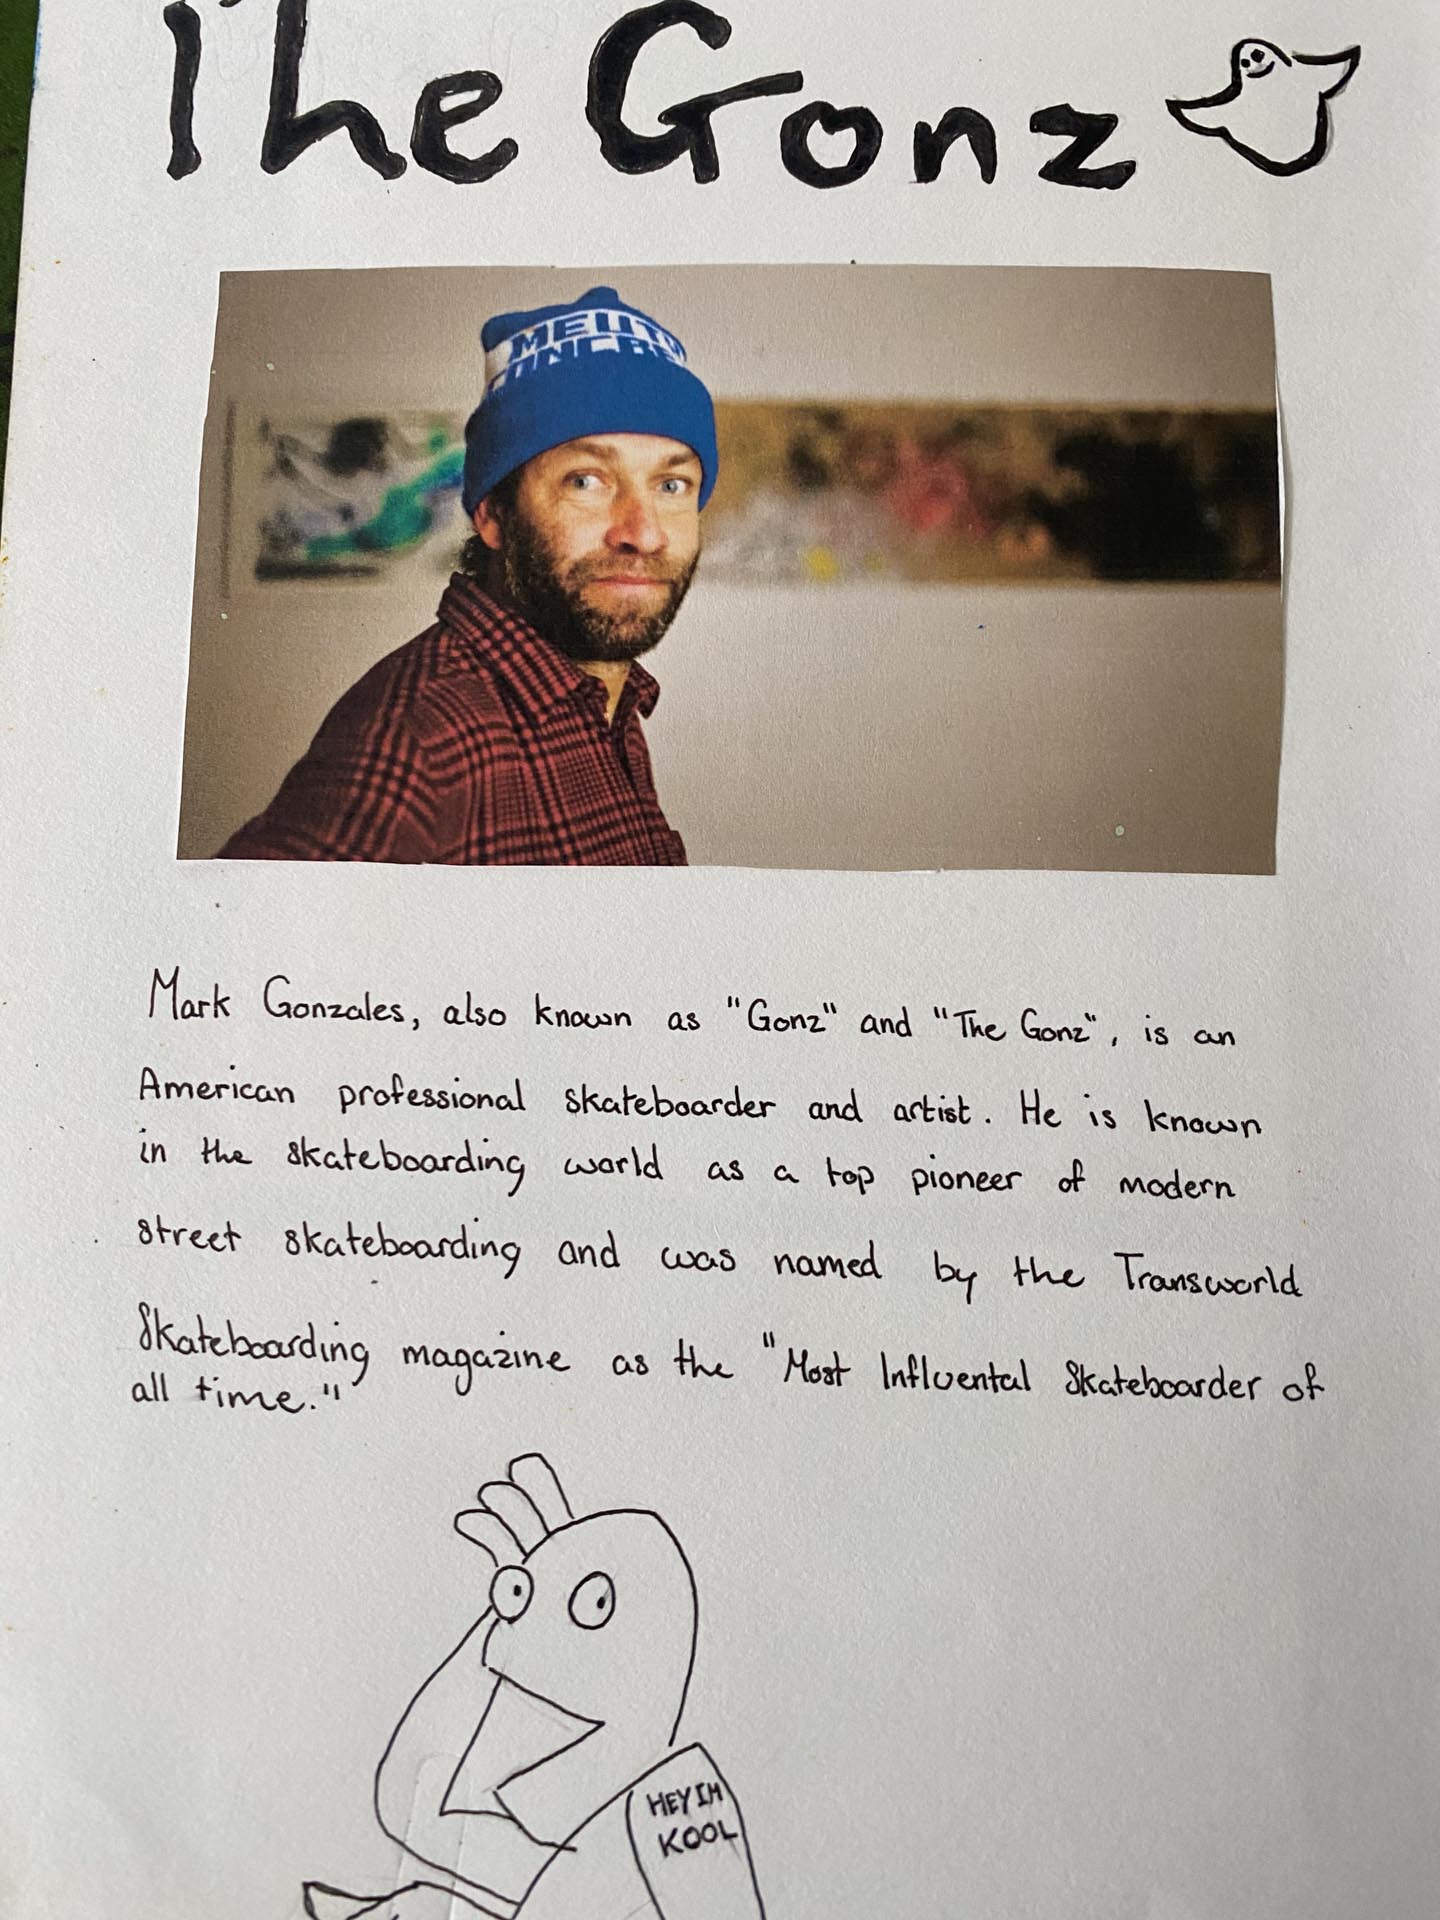 The Gonz
Mark Gonzales, also known as "Gonz" and "The Gonz", is an
American professional skateboarder and artist. He is known
in the skateboarding world as a top pioneer of modern
street skateboarding and was named by the Transworld
Skateboarding magazine as the "Most Influental Skateboarder of
all time."
HEY IM
KOOL